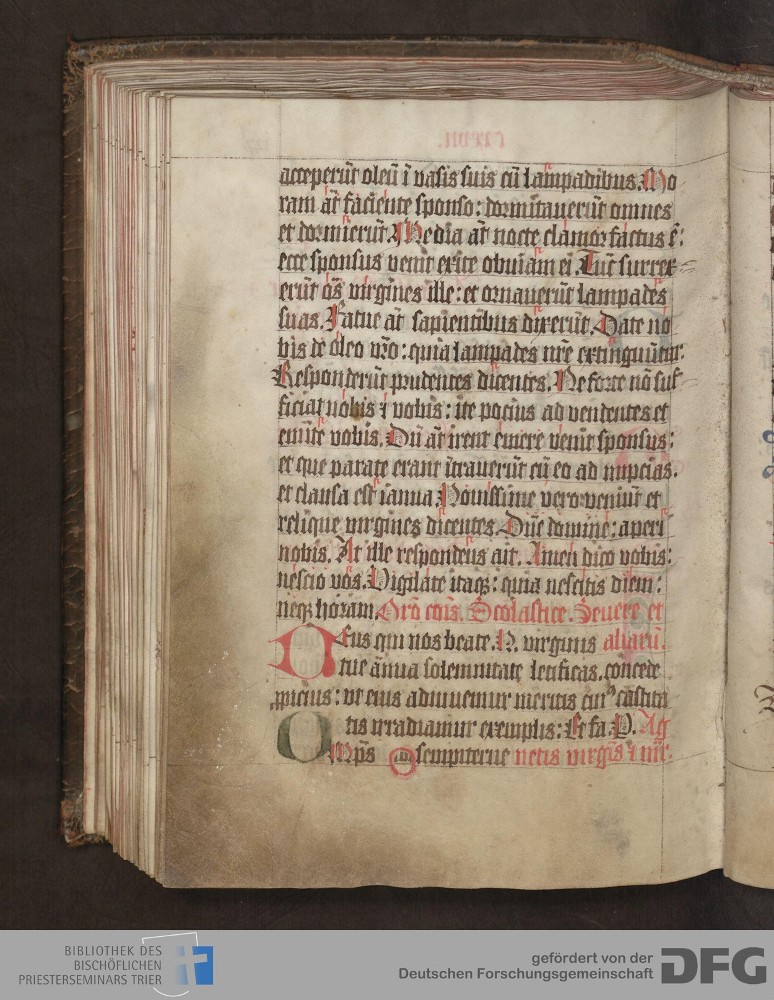 acceperūt oleū ī vasis suis cū lampadibus. Mo
ram aūt faciente sponso: dormitaverūt omnes
et dormierūt. Media aūt nocte clamor factus ē:
ecce sponsus venit exite obuiam ei. Tūc surrex=
erūt oēs virgines ille: et ornauerūt lampades
suas. Fatue aūt sapientibus dixerūt. Date no
bis de oleo vr̄o: quia lampades nr̄e extinguūtur.
Responderūt prudentes dicentes. Ne forte nō suf
ficiat nobis ⁊ vobis: ite pocius ad vendentes et
emite vobis. Dū aūt irent emere venit sponsus:
et que parate erant ītrauerūt cū eo ad nupcias.
et clausa est ianua. Nouissime vero veniūt et
relique virgines dicentes. Dn̄e domine: aperi
nobis. At ille respondens ait. Amen dico vobis:
nescio vos. Vigilate itaqꝫ: quia nescitis diem:
neqꝫ horam. Orō cōis. Scolastice. Seuere et
Deus qui nos beate. N. virginis aliarū.
tue ānua solemnitate letificas. concede
ꝓpicius: ut eius adiuuemur meritis cuiꝰ castita
tis irradiamur exemplis: Et fa. P. Ag
Omps sempiterne netis virgīs ⁊ mr̄.
BIBLIOTHEK DES
BISCHÖFLICHEN
PRIESTERSEMINARS TRIER
gefördert von der
Deutschen Forschungsgemeinschaft
DFG